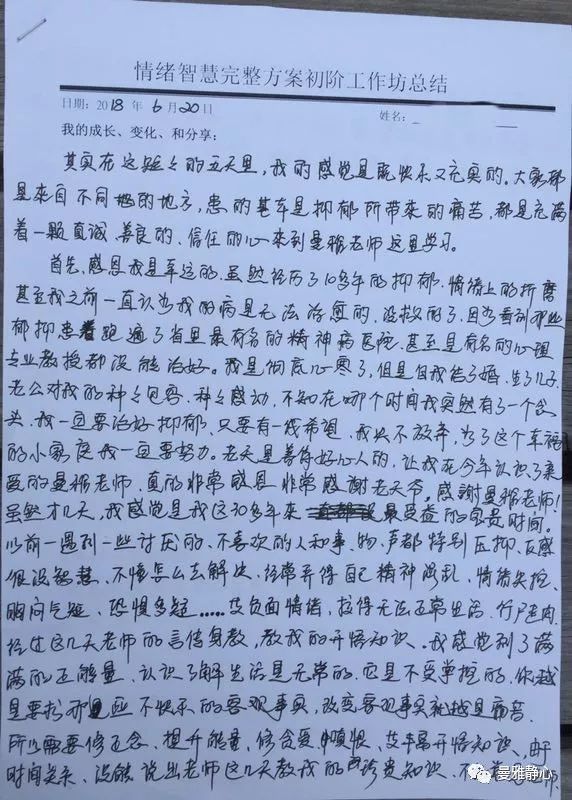 情绪智慧完整方案初阶工作坊总结
日期：2018 年 6 月 20 日 姓名：
我的成长、变化、和分享：
其实在这短短的五天里，我的感觉是既快乐又充实的。大家都
是来自不同的地方，患的基本是抑郁所带来的痛苦，都是充满
着一颗真诚、善良的、信任的心来到曼雅老师这里学习。
首先，感恩我是幸运的，虽然经历了10多年的抑郁、情绪上的折磨
甚至我之前一直认为我的病是无法治愈的、没救的了，因为看到那些
郁抑患者跑遍了省里最有名的精神病医院，甚至是有名的心理
专业教授都没能治好。我是彻底心寒了，但是自我结了婚、生了儿子，
老公对我的种种包容、种种感动，不知在哪个时间我突然有了一个念
头，我一定要治好抑郁，只要有一线希望，我决不放弃，为了这个幸福
的小家庭我一定要努力。老天是善待好心人的，让我在今年认识了亲
爱的曼雅老师，真的非常感恩非常感谢老天爷。感谢曼雅老师！
虽然才几天，我感觉是我这30多年来最受益的宝贵时间。
以前一遇到一些讨厌的、不喜欢的人和事、物、声都特别压抑、反感
很没智慧，不懂怎么去解决，经常弄得自己精神涣乱，情绪失控，
胸闷气短，恐惧多疑……艾负面情绪，拉得无法正常生活，行尸走肉，
经过这几天老师的言传身教，教我的开悟知识，我感觉到了满
满的正能量，认识了解生活是无常的，它是不受掌控的，你越
是要抗那些不快乐的客观事实，改变客观事实就越是痛苦，
所以需要修正念、提升能量、修贪爱、嗔恨、艾丰富开悟知识、由于
时间关系、没能说出老师这几天教我的珍贵知识、不
曼雅静心